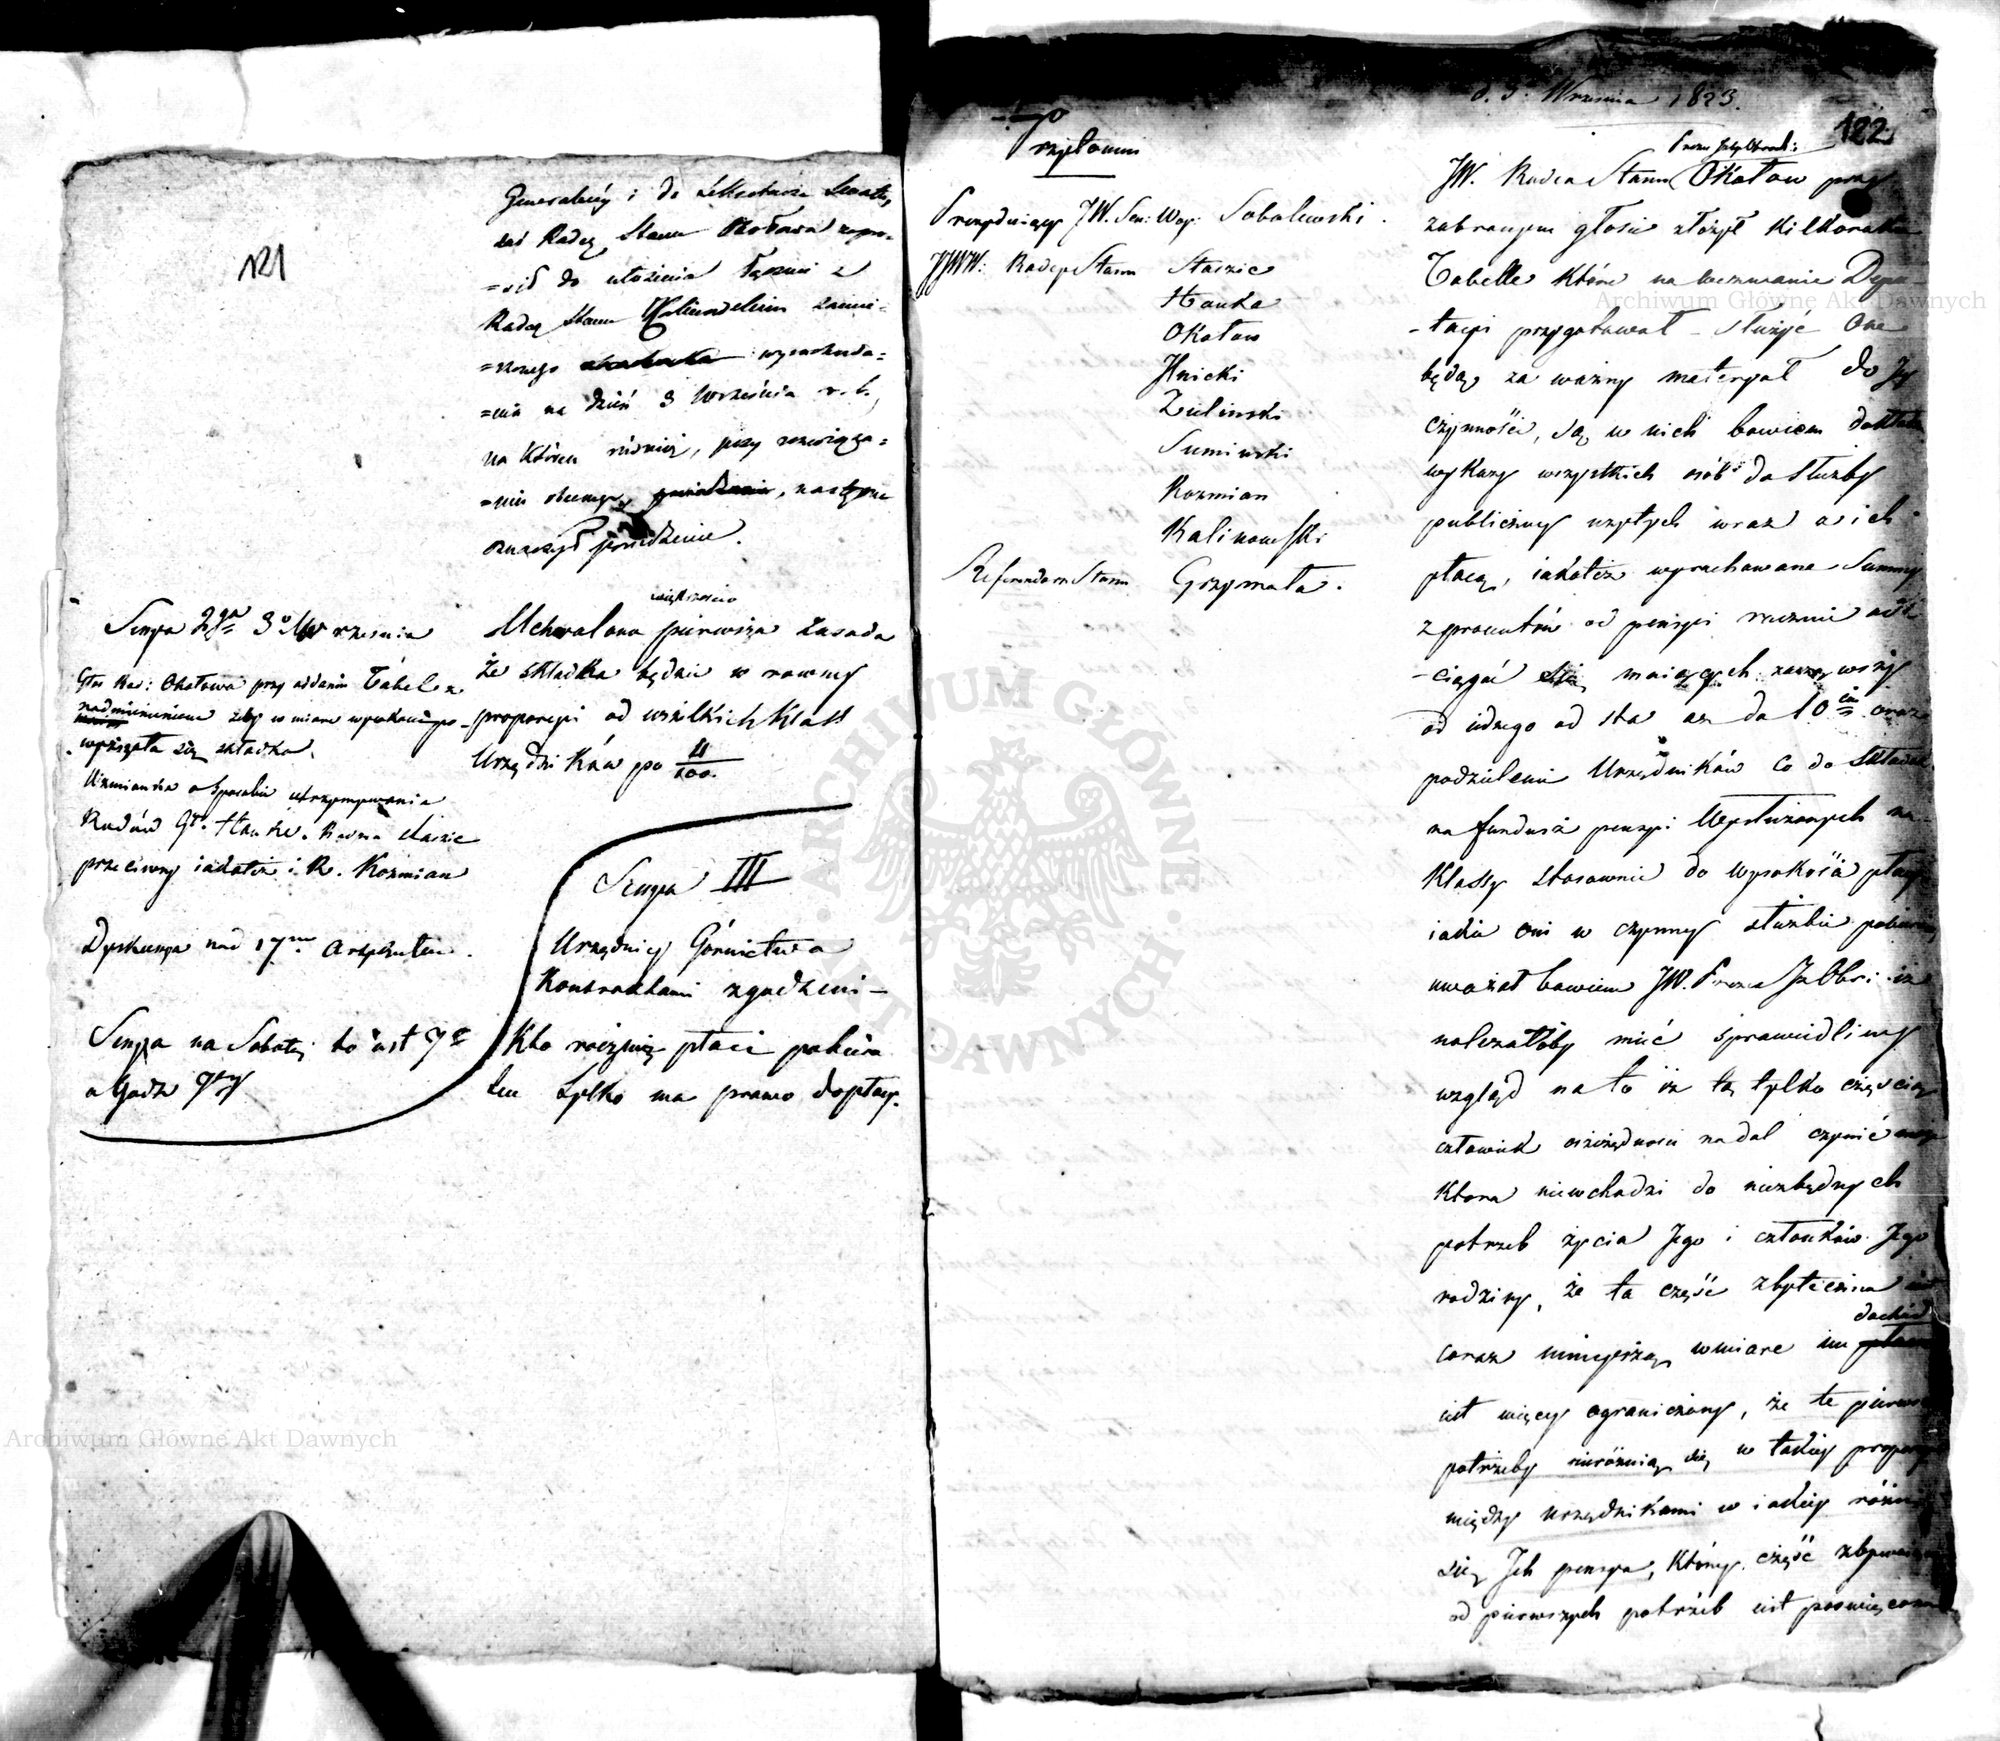 121
Generalnéy i do
dać Radcę Stanu Okołowa zapro=
=sił do ułożenia łącznie z
Radcą Stanu
na dzień 3 Września r. b.,
na którem również, przy rozwiąza=
=niu następne
oznaczył posiedzenie.
Sessya 2ga 3o Września
Głos Rad: Okołowa przy oddaniu Tabel z
nadmienieniem żeby w miarę
składka.
Wzmianka o sposobie utrzymywania
Radców Gł. Hauke. Radca Staszic
przeciwny iakotéż i R. Kozmian
Dyskussya nad 17m Artykułem.
Sessya na Sobotę to iest
o Godz
większością
Uchwalona pierwsza zasada
że składka będzie w rownéy
proporcyi od wszelkich klass
Urzędników po 4/100.
Sessya III
Urzędnicy Górnictwa
Kontraktami zgodzeni —
Kto roczną płacę pobiera
ten tylko ma prawo do płacy.
d. 3. Września 1823.
122
Prezyduiący JW. Sen: Woj: Sobolewski.
JJWW: Radcy Stanu Staszic
Hauke
Okołow
Jlnicki
Zieliński
Sumiński
Kozmian
Kalinowski
Referendarz Stanu Grzymała.
JW. Radca Stanu Okołow przy
zabranym głosie złożył kilkoraki
Tabelle które na wezwanie Depu-
-tacyi przygotował – służyć One
będą za ważny materyał do Jéy
czynności, są w nich bowiem
wykazy wszystkich osób do służby
publicznéy wziętych wraz o ich
płacą, iakotéż wyrachowane Summy
z procentów od pensyi rocznie
-ciągać się maiących zacząwszy
od iednego od sta aż do 10iu oraz
podzieleni Urzędników co do składki
na fundusz pensyi Wysłużonych na
Klassy stosownie do wysokości płacy
iaką oni w czynnéy służbie pobieraią
uważał bowiem JW.
należałoby mieć sprawiedliwy
wzgląd na to iż tę tylko częścią
człowiek oszczędności nadal czynić może
która niewchodzi do niezbędnych
potrzeb życia Jego i członków Jego
rodziny, że ta część zbyteczna iest
dochód
coraz mnieyszą w miare im
iest więcéy ograniczony, że te pierwsze
potrzeby nieróżnią się w takiéy proporcyi
między urzędnikami w iakiéy różni
się Jch pensya, któréy część
od pierwszych potrzeb iest poswięcona
Archiwum Główne Akt Dawnych
Archiwum Główne Akt Dawnych
ARCHIWUM GŁÓWNE AKT DAWNYCH